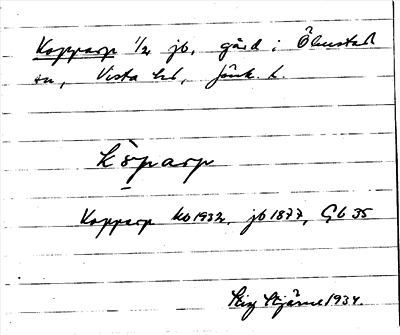 Kopparp 1/2 jb, gård i Ölmstad
sn, Vista hd, Jönk. l.
kòparp
Kopparp kb 1932, jb 1877, Gb 35
Stig Stjärne 1934.